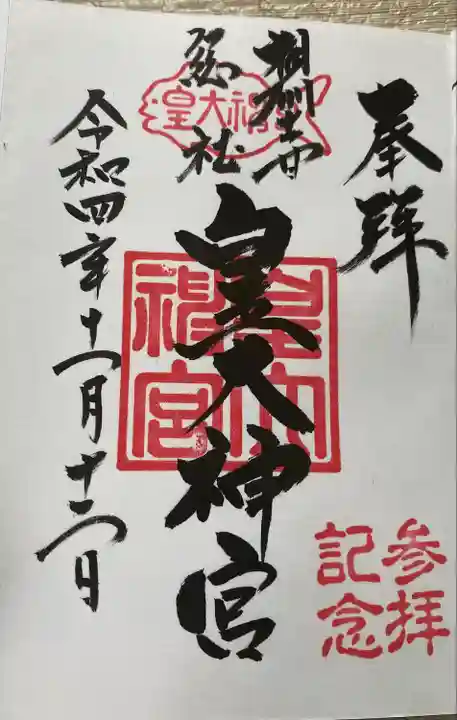 奉拝
相州土甘
総社
皇大神宮
皇大神宮
皇大神宮
令和四年十一月十二日
参拝
記念